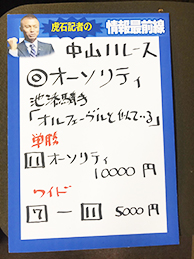 虎石記者の 情報最前線
中山11レース
◎オーソリティ
池添騎手
「オルフェーヴルと似ている」
単勝
11 オーソリティ
10000円
ワイド
7 ー 11 5000円